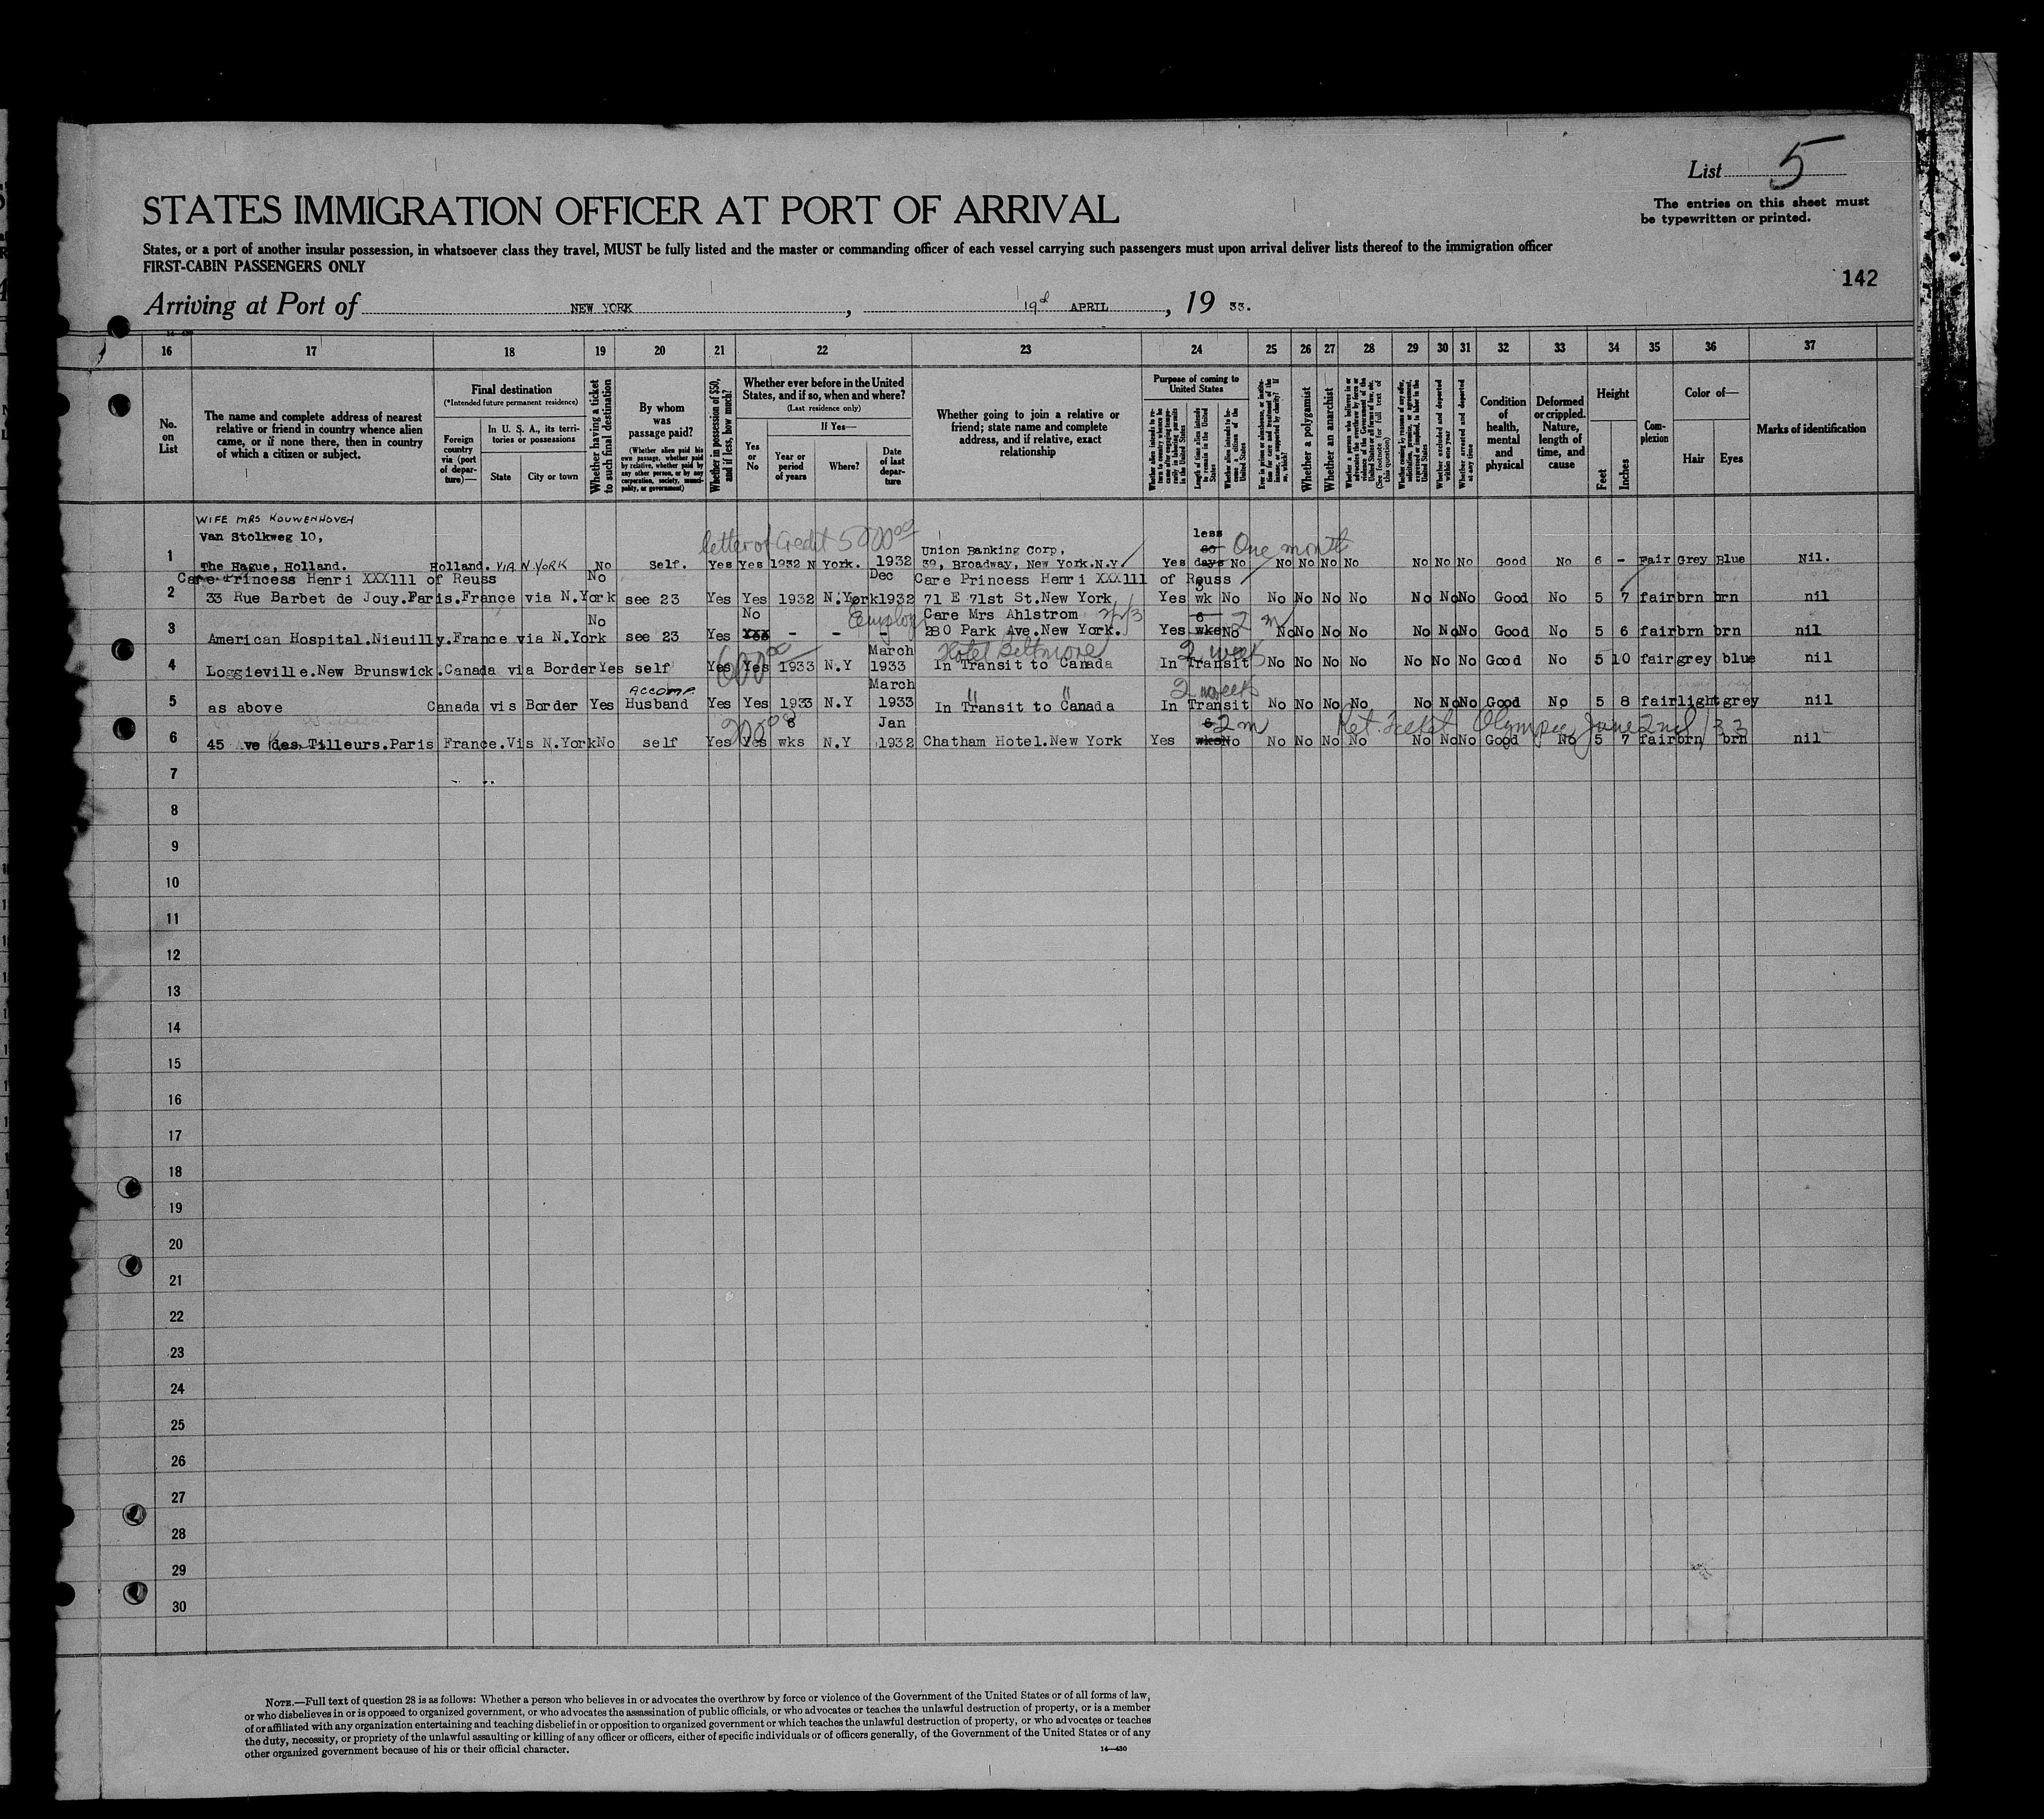 List 5
STATES IMMIGRATION OFFICER AT PORT OF ARRIVAL
The entries on this sheet must
be typewritten or printed.
States, or a port of another insular possession, in whatsoever class they travel, MUST be fully listed and the master or commanding officer of each vessel carrying such passengers must upon arrival deliver lists thereof to the immigration officer
FIRST-CABIN PASSENGERS ONLY
142
Arriving at Port of NEW YORK, 19d APRIL, 19 33.
16 17 18 19 20 21 22 23 24 25 26 27 28 29 30 31 32 33 34 35 36 37
No. on List
The name and complete address of nearest relative or friend in country whence alien came, or if none there, then in country of which a citizen or subject.
Final destination
(*Intended future permanent residence)
Foreign country via (port of departure)—
In U. S. A., its territories or possessions
State
City or town
Whether having a ticket to such final destination
By whom was passage paid?
(Whether alien paid his own passage, whether paid by relative, whether paid by any other person, or by any corporation, society, municipality, or government)
Whether in possession of $50, and if less, how much?
Whether ever before in the United States, and if so, when and where?
(Last residence only)
Yes or No
If Yes—
Year or period of years
Where?
Date of last departure
Whether going to join a relative or friend; state name and complete address, and if relative, exact relationship
Purpose of coming to United States
Length of time alien intends to remain in the United States
Whether alien intends to become a citizen of the United States
Whether a polygamist
Whether an anarchist
Whether excluded and deported within one year
Whether arrested and deported at any time
Condition of health, mental and physical
Deformed or crippled. Nature, length of time, and cause
Height
Feet
Inches
Complexion
Color of—
Hair
Eyes
Marks of identification
WIFE MRS KOUWENHOVEN
Van Stolkweg 10,
letter of Credit 5000 00
less
60 One month
1 The Hague, Holland. Holland. VIA N.YORK No Self. Yes Yes 1932 N York. 1932 Union Banking Corp, 39, Broadway, New York.N.Y. Yes days No No No No No No No No Good No 6 - Fair Grey Blue Nil.
Care Princess Henri XXX111 of Reuss No Dec Care Princess Henri XXX111 of Reuss
2 33 Rue Barbet de Jouy.Paris.France via N.York see 23 Yes Yes 1932 N.York 1932 71 E 71st St.New York Yes 3 wk No No No No No No No No Good No 5 7 fair brn brn nil
No No Employ Care Mrs Ahlstrom 6 2 m
3 American Hospital.Nieuilly.France via N.York see 23 Yes Yes - - - 280 Park Ave.New York. Yes wks No No No No No No No No Good No 5 6 fair brn brn nil
March Hotel Biltmore 2 week
4 Loggieville.New Brunswick.Canada via Border Yes self 600 00 Yes Yes 1933 N.Y 1933 In Transit to Canada In Transit No No No No No No No Good No 5 10 fair grey blue nil
ACCOMP. March " " 2 week
5 as above Canada vis Border Yes Husband Yes Yes 1933 N.Y 1933 In Transit to Canada In Transit No No No No No No No Good No 5 8 fair light grey nil
200 00 8 Jan 6 2 m Ret. Ticket Olympic June 2nd /33
6 45 Ave des Tilleurs.Paris France.Vis N.York No self Yes Yes wks N.Y 1932 Chatham Hotel.New York Yes wks No No No No No No No No Good No 5 7 fair brn brn nil
7
8
9
10
11
12
13
14
15
16
17
18
19
20
21
22
23
24
25
26
27
28
29
30
NOTE.—Full text of question 28 is as follows: Whether a person who believes in or advocates the overthrow by force or violence of the Government of the United States or of all forms of law,
or who disbelieves in or is opposed to organized government, or who advocates the assassination of public officials, or who advocates or teaches the unlawful destruction of property, or is a member
of or affiliated with any organization entertaining and teaching disbelief in or opposition to organized government or which teaches the unlawful destruction of property, or who advocates or teaches
the duty, necessity, or propriety of the unlawful assaulting or killing of any officer or officers, either of specific individuals or of officers generally, of the Government of the United States or of any
other organized government because of his or their official character.
14—430